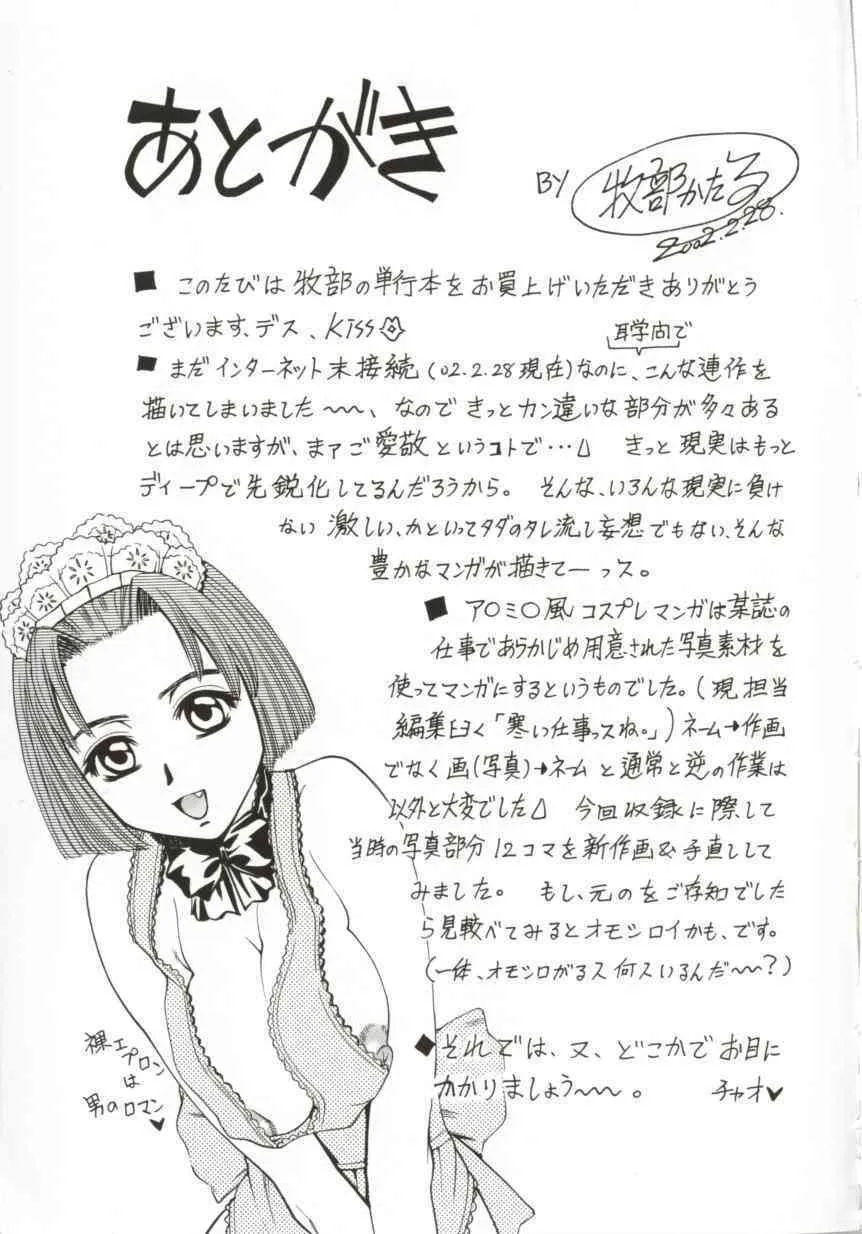 あとがき
BY 牧部かたる
2002.2.28.
■ このたびは牧部の単行本をお買上げいただきありがとう
ございます、デス、Kiss
耳学問で
■ まだインターネット未接続(02.2.28現在)なのに、こんな連作を
描いてしまいました〜〜、なのできっとカン違いな部分が多々ある
とは思いますが、まァご愛敬というコトで…⊿ きっと現実はもっと
ディープで先鋭化してるんだろうから。 そんな、いろんな現実に負け
ない激しい、かといってタダのタレ流し妄想でもない、そんな
豊かなマンガが描きてーっス。
■ ア○ミ○風コスプレマンガは某誌の
仕事であらかじめ用意された写真素材を
使ってマンガにするというものでした。(現担当
編集曰く「寒い仕事っスね。」)ネーム→作画
でなく画(写真)→ネームと通常と逆の作業は
以外と大変でした⊿ 今回収録に際して
当時の写真部分12コマを新作画&手直しして
みました。 もし、元のをご存知でした
ら見較べてみるとオモシロイかも、です。
(一体、オモシロがるス何スいるんだ〜〜?)
◆それでは、又、どこかでお目に
かかりましょう〜〜。 チャオ♥
裸エプロン
は
男のロマン♥